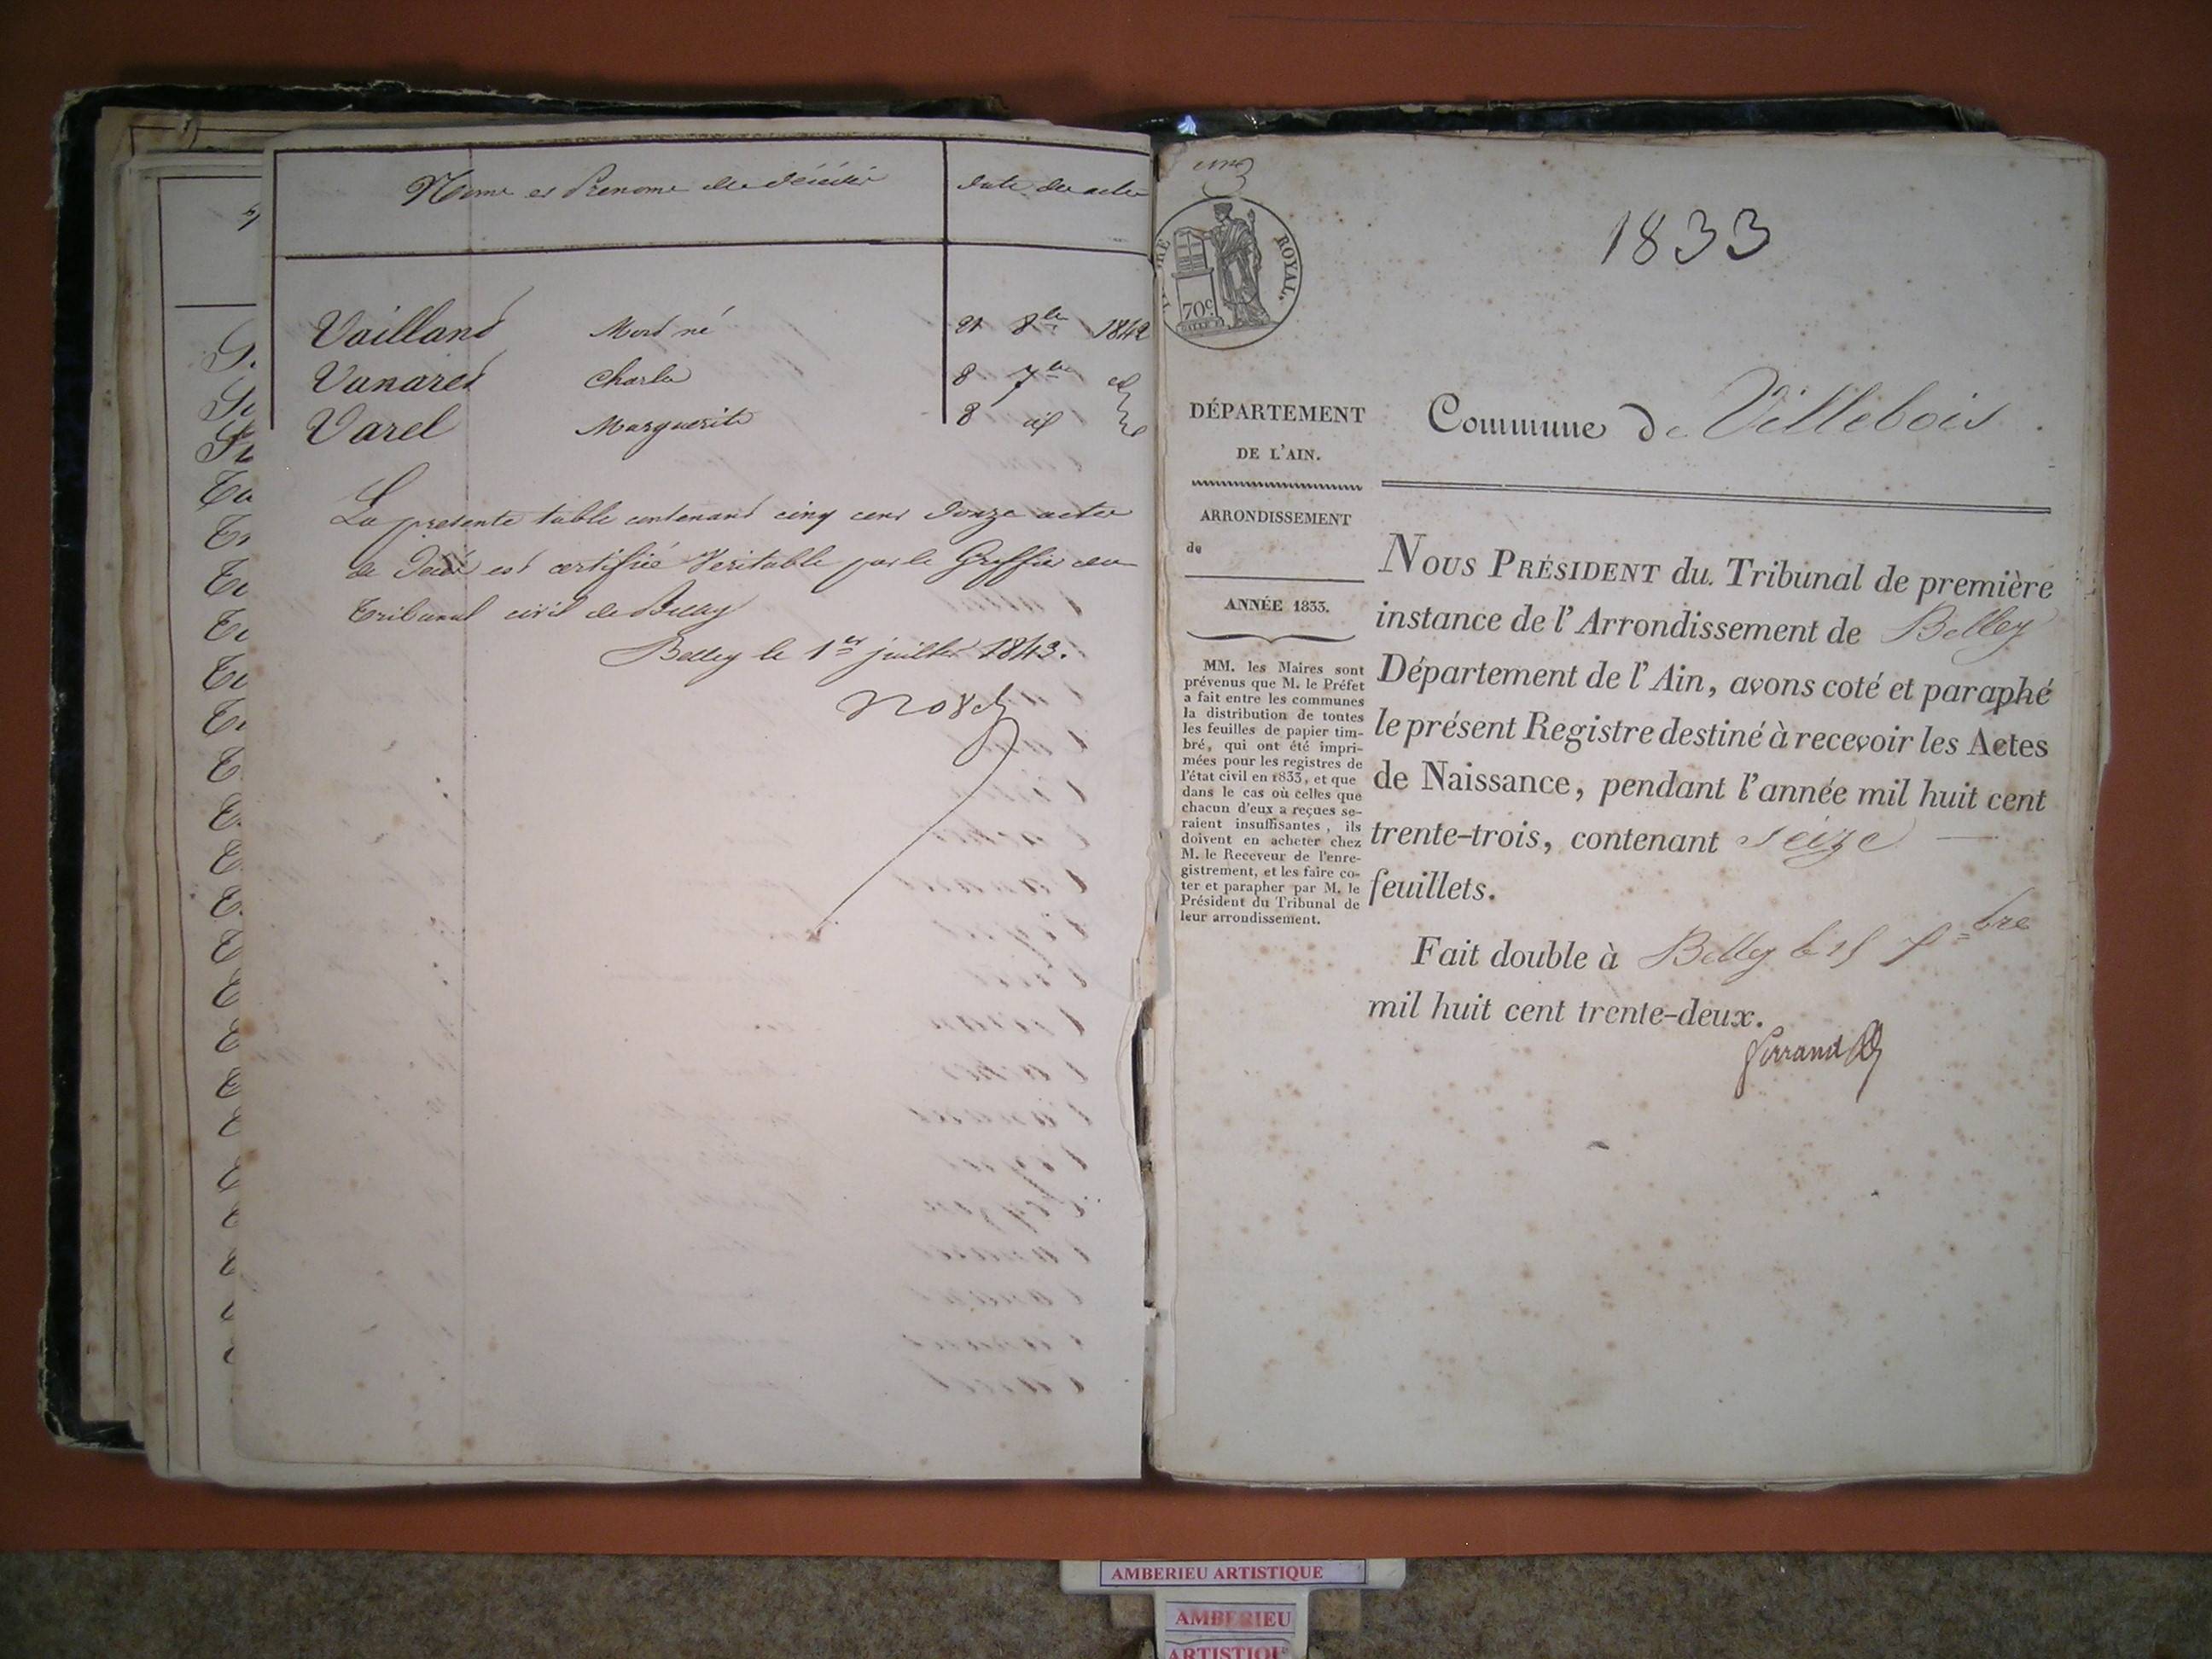 Noms et Prenoms des décédés
date des actes
Vailland Mort né 21 8bre 1842
Vanaret Charles 8 7bre id
Varel Marguerite 8 id id
La presente table contenant cinq cent douze actes
de Décès est certifiée Veritable par le Greffier du
Tribunal civil de Belley
Belley le 1er juillet 1843.
ROYAL.
70c
1833
DÉPARTEMENT
DE L'AIN.
ARRONDISSEMENT
de
ANNÉE 1833.
MM. les Maires sont
prévenus que M. le Préfet
a fait entre les communes
la distribution de toutes
les feuilles de papier tim-
bré, qui ont été impri-
mées pour les registres de
l'état civil en 1833, et que
dans le cas où celles que
chacun d'eux a reçues se-
raient insuffisantes, ils
doivent en acheter chez
M. le Receveur de l'enre-
gistrement, et les faire co-
ter et parapher par M. le
Président du Tribunal de
leur arrondissement.
Commune de Villebois.
NOUS PRÉSIDENT du Tribunal de première
instance de l'Arrondissement de Belley
Département de l'Ain, avons coté et paraphé
le présent Registre destiné à recevoir les Actes
de Naissance, pendant l'année mil huit cent
trente-trois, contenant seize
feuillets.
Fait double à Belley le 15 bre
mil huit cent trente-deux.
AMBERIEU ARTISTIQUE
AMBERIEU
ARTISTIQUE